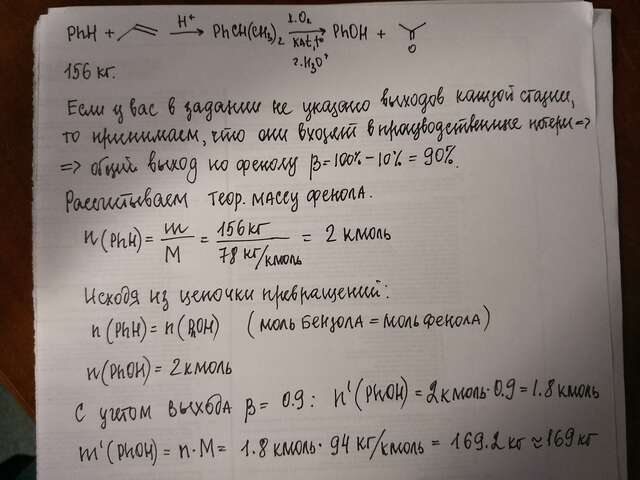 PhH + H⁺ → PhCH(CH₃)₂ 1.O₂ кат, t° 2.H₃O⁺ → PhOH + O
156 кг.
Если у вас в задании не указано выходов каждой стадии,
то принимаем, что они входят в производственные потери =>
=> общий выход по фенолу β = 100% - 10% = 90%.
Рассчитываем теор. массу фенола.
n(PhH) = m/M = 156 кг/78 кг/кмоль = 2 кмоль
Исходя из цепочки превращений:
n(PhH) = n(PhOH) (моль бензола = моль фенола)
n(PhOH) = 2 кмоль
С учетом выхода β = 0.9: n'(PhOH) = 2 кмоль · 0.9 = 1.8 кмоль
m'(PhOH) = n · M = 1.8 кмоль · 94 кг/кмоль = 169.2 кг ≈ 169 кг